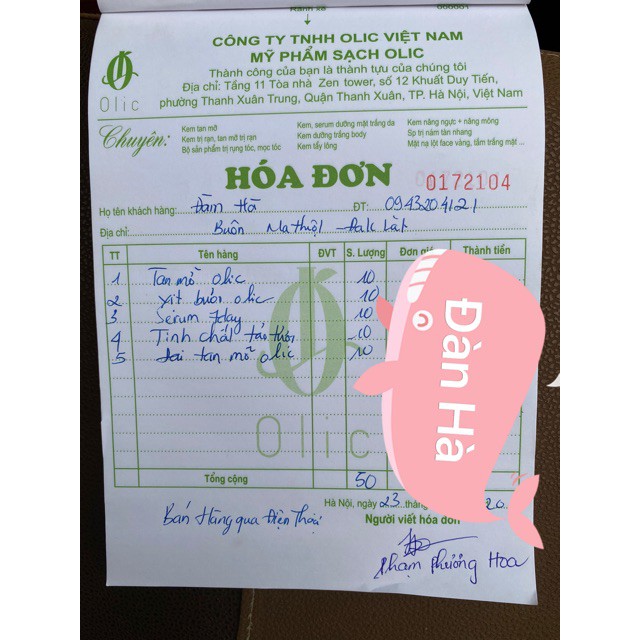 000001
CÔNG TY TNHH OLIC VIỆT NAM
MỸ PHẨM SẠCH OLIC
Thành công của bạn là thành tựu của chúng tôi
Địa chỉ: Tầng 11 Tòa nhà Zen tower, số 12 Khuất Duy Tiến,
phường Thanh Xuân Trung, Quận Thanh Xuân, TP. Hà Nội, Việt Nam
Olic
Chuyên:
Kem tan mỡ
Kem trị rạn, tan mỡ trị rạn
Bộ sản phẩm trị rụng tóc, mọc tóc
Kem, serum dưỡng mặt trắng da
Kem dưỡng trắng body
Kem tẩy lông
Kem nâng ngực + nâng mông
Sp trị nám tàn nhang
Mặt nạ lột face vàng, tắm trắng mặt ...
HÓA ĐƠN 0172104
Họ tên khách hàng: Đàm Hà ĐT: 0943204121
Địa chỉ: Buôn Ma thiột - Đak Lăk
TT Tên hàng ĐVT S. Lượng Đơn giá Thành tiền
1 Tan mỡ olic 10
2 xịt bưởi olic 10
3 Serum 7day 10
4 Tinh chất 10
5 đai tan mỡ olic 10
Olic
Tổng cộng 50
Hà Nội, ngày 23 tháng 20
Bán Hàng qua Điện Thoại
Người viết hóa đơn
Phạm Phương Hoa
Đàn Hà